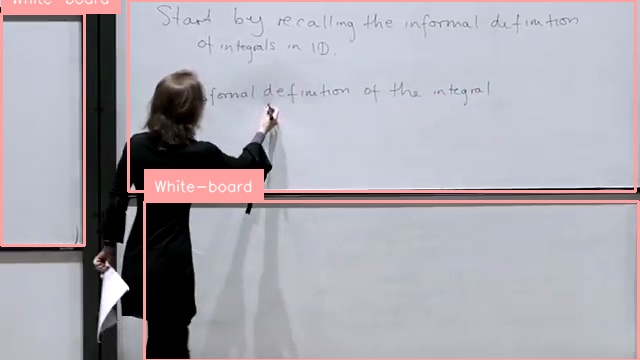 White-board
Start by recalling the informal definition
of integrals in 1D.
formal definition of the integral
White-board